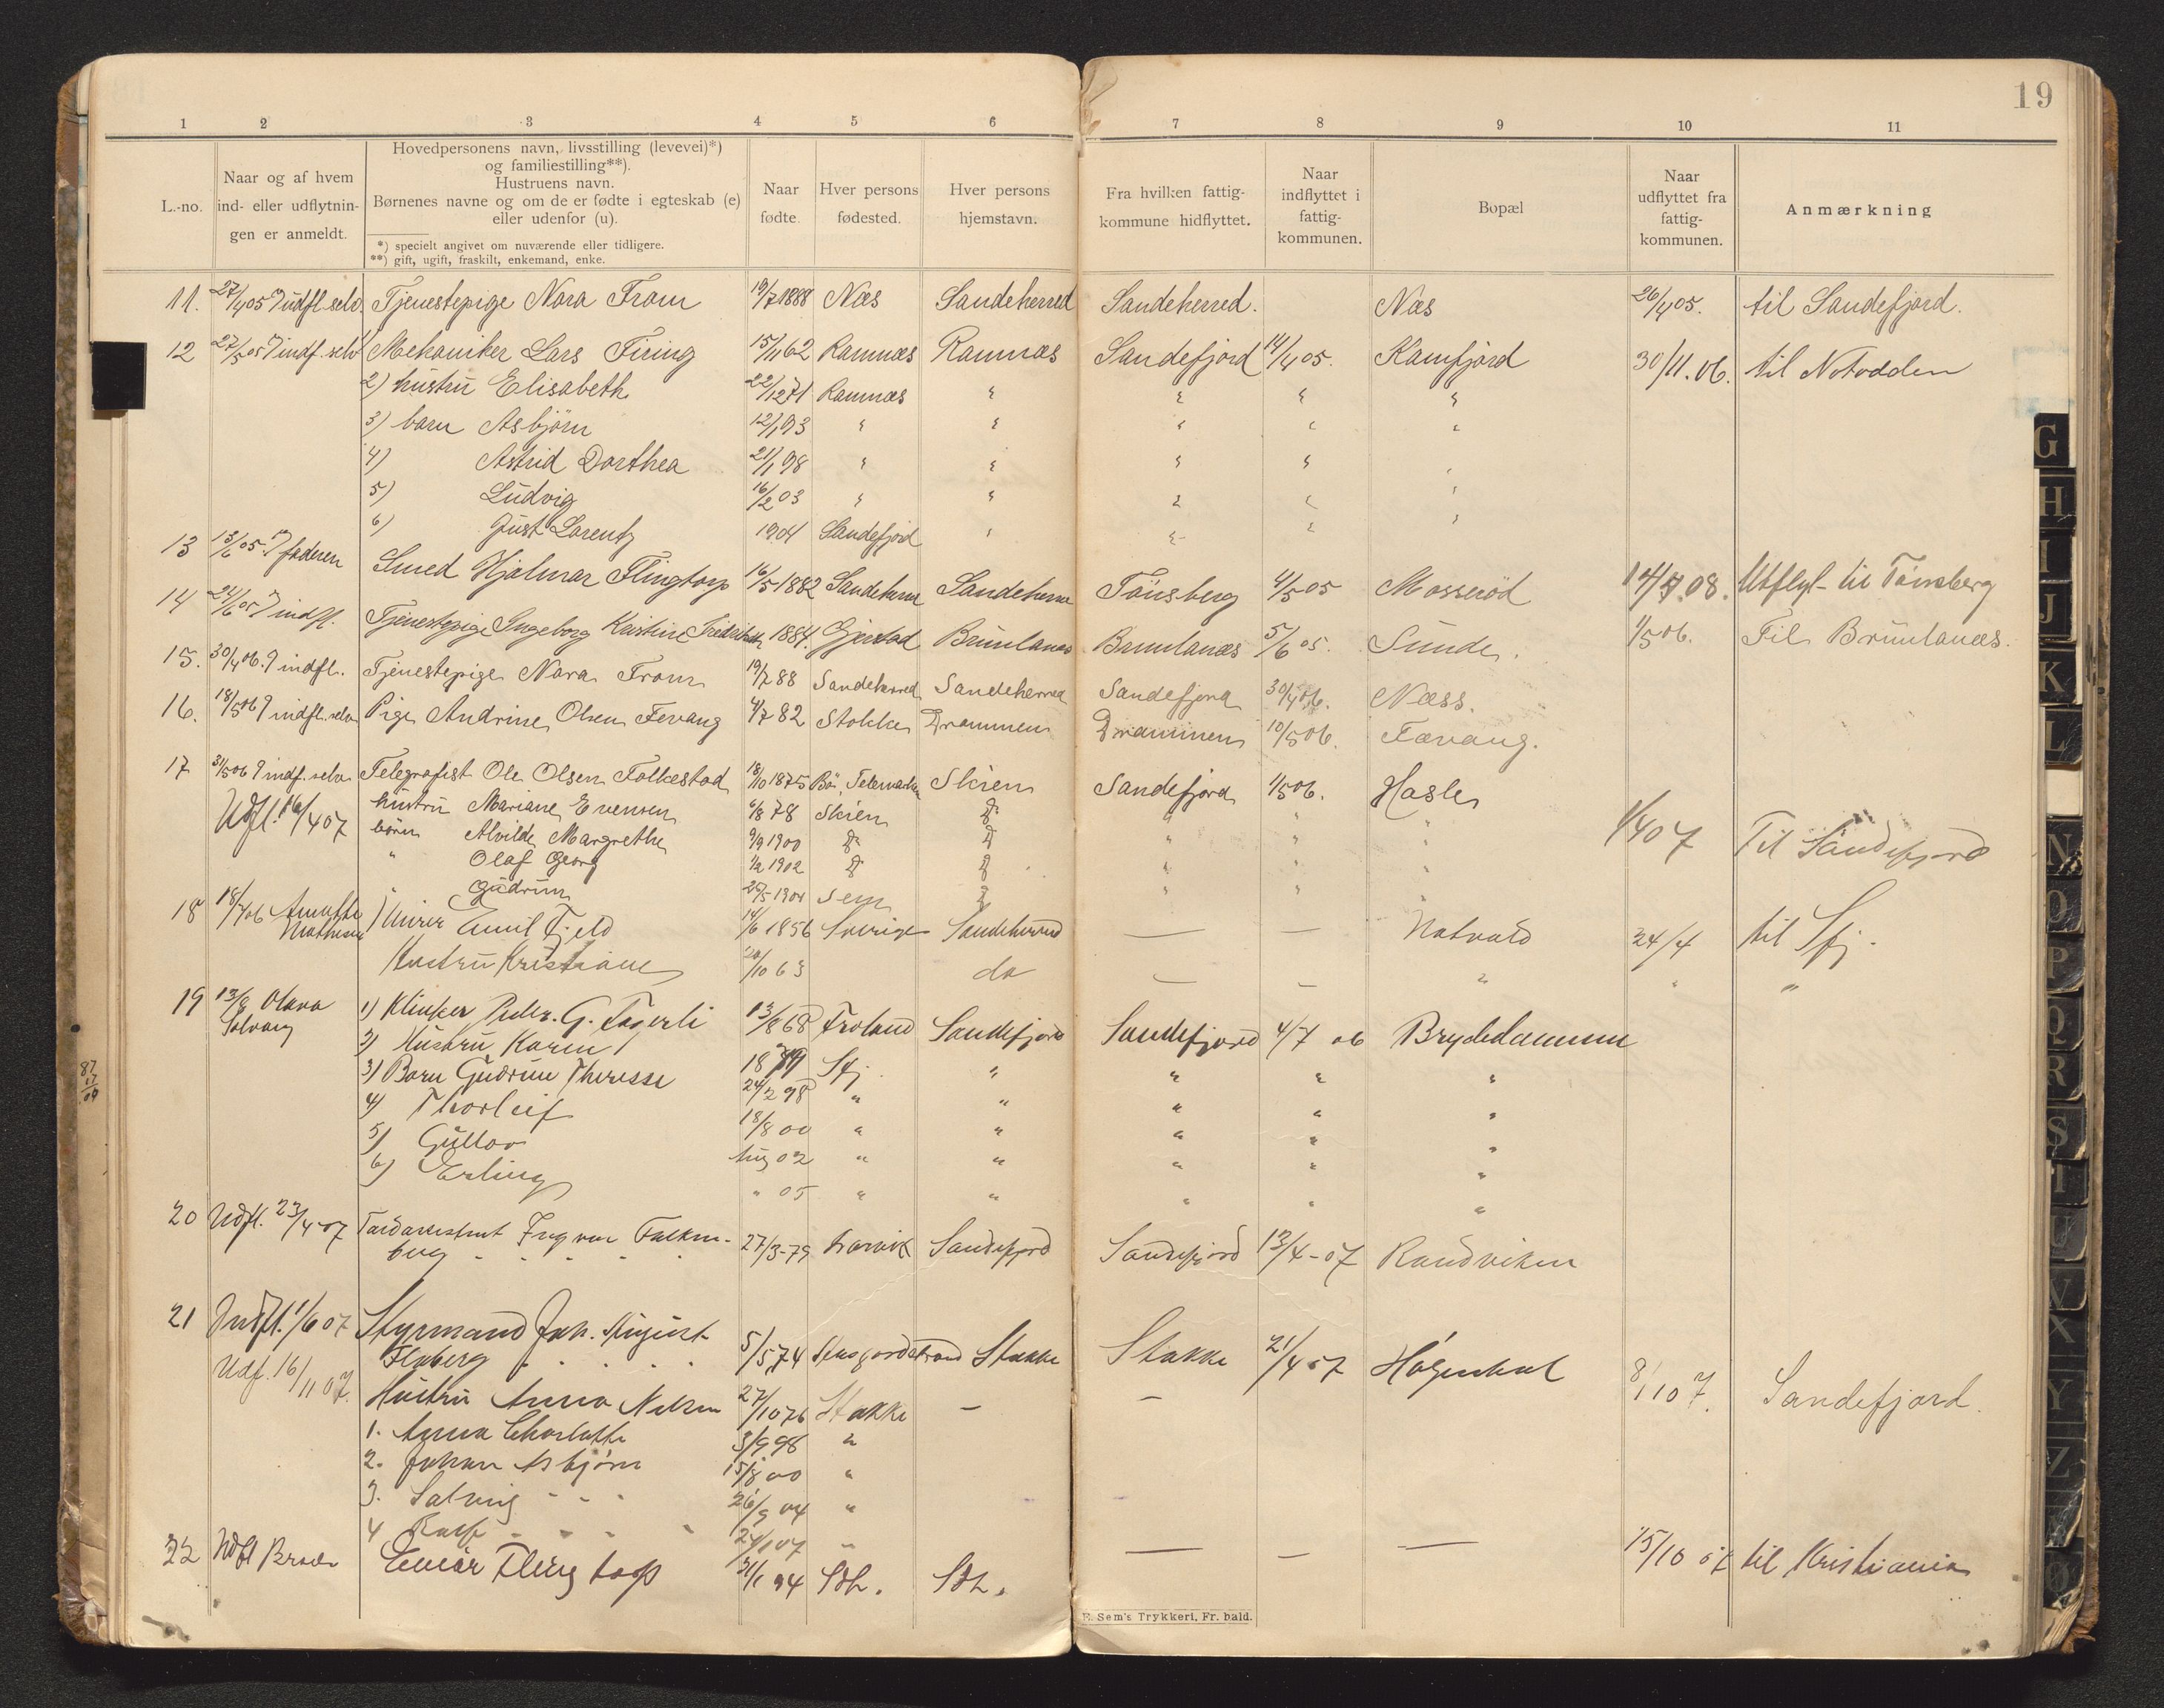 19
1 2 3 4 5 6 7 8 9 10 11
L.-no.
Naar og af hvem
ind- eller udflytnin-
gen er anmeldt.
Hovedpersonens navn, livsstilling (levevei)*)
og familiestilling**).
Hustruens navn.
Børnenes navne og om de er fødte i egteskab (e)
eller udenfor (u).
*) specielt angivet om nuværende eller tidligere.
**) gift, ugift, fraskilt, enkemand, enke.
Naar
fødte.
Hver persons
fødested.
Hver persons
hjemstavn.
Fra hvilken fattig-
kommune hidflyttet.
Naar
indflyttet i
fattig-
kommunen.
Bopæl
Naar
udflyttet fra
fattig-
kommunen.
Anmærkning
11. 27/4 05 udfl. selv. Tjenestepige Nora Fram 19/7 1888 Næs Sandeherred Sandeherred. Næs 26/4 05. til Sandefjord.
12 27/5 05 indf. selv Mekaniker Lars Firing 15/11 62 Ramnæs Ramnæs Sandefjord 14/4 05. Kamfjord 30/11. 06. til Notodden
2) hustru Elisabeth 22/12 71 Ramnæs " " " "
3) barn Asbjørn 12/1 93 " " " " "
4) Astrid Dorthea 21/1 98 " " " " "
5) Ludvig 16/2 03 " " " " "
6) Just Lorentz 1904 Sandefjord " " " "
13 13/6 05. faderen Smed Hjalmar Flingtorp 16/5 1882 Sandeherred Sandeherred Tönsberg 4/5 05 Mosserød 14/5 08. Utflyt- til Tønsberg
14 24/6 05 indfl. Tjenestepige Ingeborg Kristine 1884. Gjerstad Brunlanæs Brunlanæs 5/6 05. Sunde. 1/5 06. Til Brunlanæs.
15. 30/4 06. indfl. Tjenestepige Nora Fram 19/7 88 Sandeherred Sandeherred Sandefjord 30/4 06. Næss.
16. 18/5 06 indfl. selv Pige Andrine Olsen Fevang 4/7 82 Stokke Drammen Drammen 10/5 06. Fævang.
17 31/5 06 indf. selv Telegrafist Ole Olsen Folkestad 18/10 1875 Bø, Telemarken Skien Sandefjord 1/5 06. Hasle
Udfl. 16/4 07 hustru Mariane Evensen 6/8 78 Skien " " " " 1/4 07 Til Sandefjord
børn Alvilde Margrethe 9/9 1900 " " " " "
" Olaf Georg 1/2 1902 " " " " "
" Gudrun 25/5 1904 Sem " " " "
18 18/7 06 Amalie Mathisen 1) Murer Emil Fjeld 14/6 1856 Sverige Sandeherred — — Natvald 24/4 til Sfj.
Hustru Kristiane 20/10 63 do — — " " "
19 13/8 Olava Solvang 1) Klinker Peder. G. Fagerli 13/8 68 Froland Sandefjord Sandefjord 4/7 06 Brydedammen
2) Hustru Karen 1879 Sfj. " " " "
3) Barn Gudrun Theresse 24/2 98 " " " " "
4) Thorleif 18/8 00 " " " " "
5) Gullov Aug 02 " " " " "
6) Erling " 05 " " " " "
20 Udfl. 23/4-07 Ingvar Falken-
berg 27/3-79 Larvik Sandefjord Sandefjord 13/4-07 Randviken
21 Indfl. 1/6 07 Styrmand Joh. August
Floberg 5/5 74 Aasgaardstrand Stokke Stokke 21/4 07 Høgenhal
Udf. 16/11 07. Hustru Anna Nilsen 27/10 76 Stokke — — 8/1107. Sandefjord.
1. Anna Charlotte 3/9 98 "
2. Johan Asbjørn 15/8 00 "
3. Solveig 26/9 04 "
4 Rolf 24/1 07 "
22 Udfl Broder Einar Flingtorp 31/1 94 Sdh. Sdh. — — — 15/10 07 til Kristiania
E. Sem's Trykkeri, Fr. hald.
G
H
I
J
K
L
N
O
P
Q
R
S
T
U
V
X
Y
Z
Ø